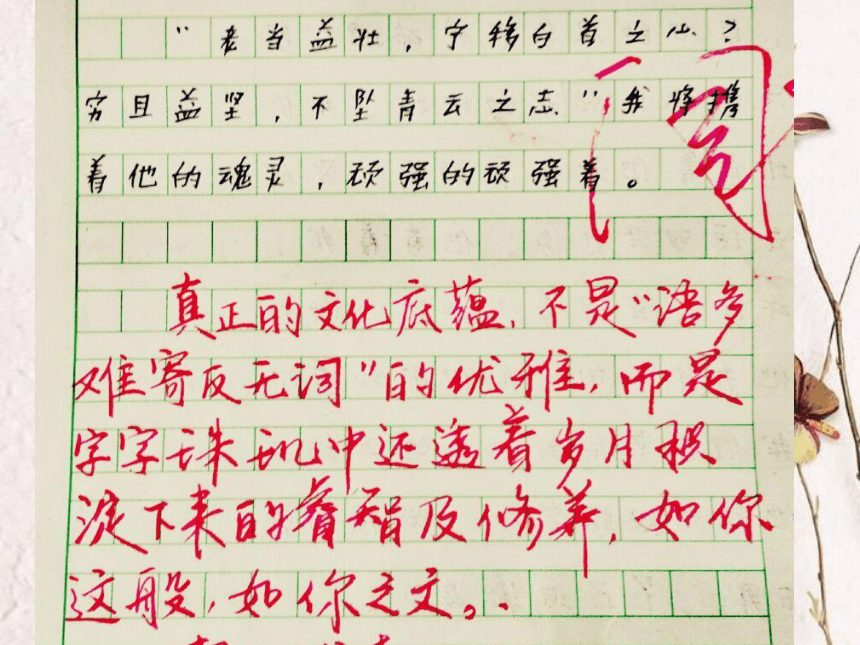 "老当益壮，宁移白首之心？
穷且益坚，不坠青云之志"我将携
着他的魂灵，顽强的顽强着。
阅
真正的文化底蕴，不是"语多
难寄反无词"的优雅，而是
字字珠玑中还透着岁月积
淀下来的睿智及修养，如你
这般，如你之文。